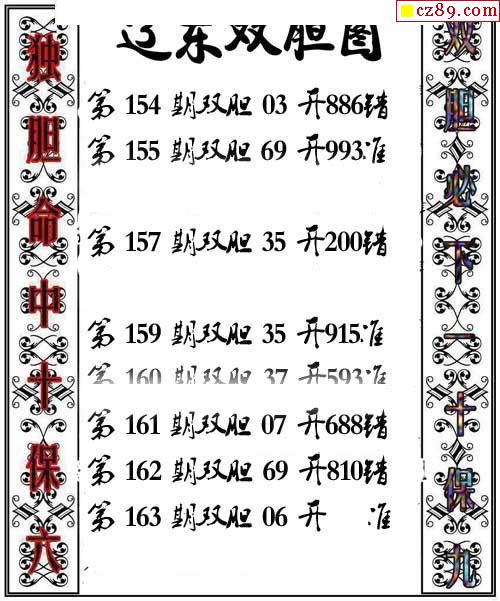 cz89.com
辽东双胆图
独胆命中十保六
第 154 期双胆 03 开886错
第 155 期双胆 69 开993准
第 157 期双胆 35 开200错
第 159 期双胆 35 开915准
第 160 期双胆 37 开593准
第 161 期双胆 07 开688错
第 162 期双胆 69 开810错
第 163 期双胆 06 开 准
双胆必下一十保九